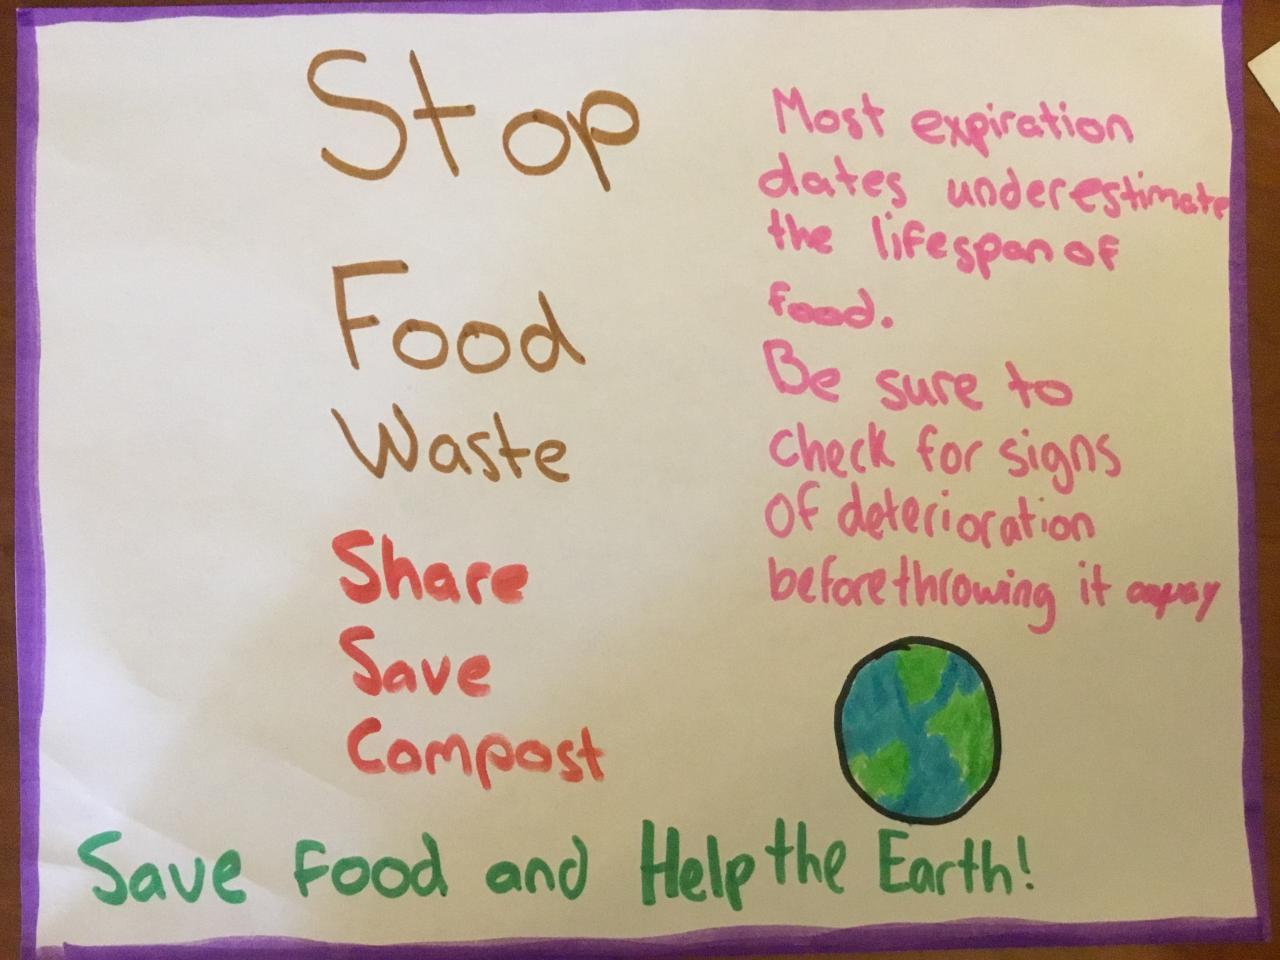 Stop
Food
Waste
Share
Save
Compost
Most expiration
dates underestimate
the lifespan of
food.
Be sure to
check for signs
of deterioration
before throwing it away
Save Food and Help the Earth!